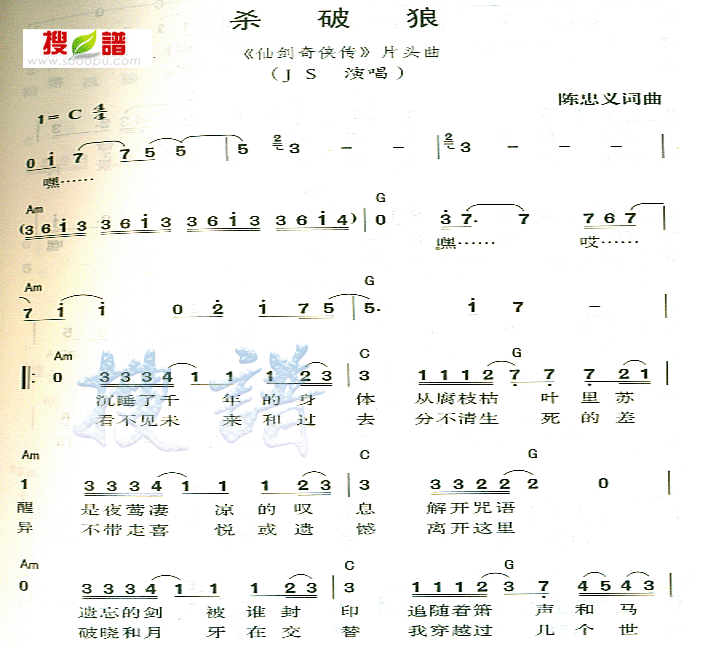 杀破狼
搜谱
www.sooopu.com
《仙剑奇侠传》片头曲
（JS 演唱）
陈忠义词曲
1=C 4/4
0 i 7 7 5 5 | 5 3 - - | 3 - - |
嘿……
Am G
(3 6 i 3 3 6 i 3 3 6 i 3 3 6 i 4) | 0 3 7. 7 7 6 7 |
嘿…… 哎……
Am G
7 i i 0 2 i 7 5 | 5. i 7 - |
Am C G
0 3 3 3 4 1 1 1 2 3 | 3 1 1 1 2 7 7 7 2 1 |
沉睡了千 年的身 体 从腐枝枯 叶里苏
看不见未 来和过 去 分不清生 死的差
搜谱
Am C G
1 3 3 3 4 1 1 1 2 3 | 3 3 3 2 2 2 0 |
醒 是夜莺凄 凉的叹 息 解开咒语
异 不带走喜 悦或遗 憾 离开这里
Am C G
0 3 3 3 4 1 1 1 2 3 | 3 1 1 1 2 3 7 4 5 4 3 |
遗忘的剑 被谁封 印 追随着箫 声和马
破晓和月 牙在交 替 我穿越过 几个世